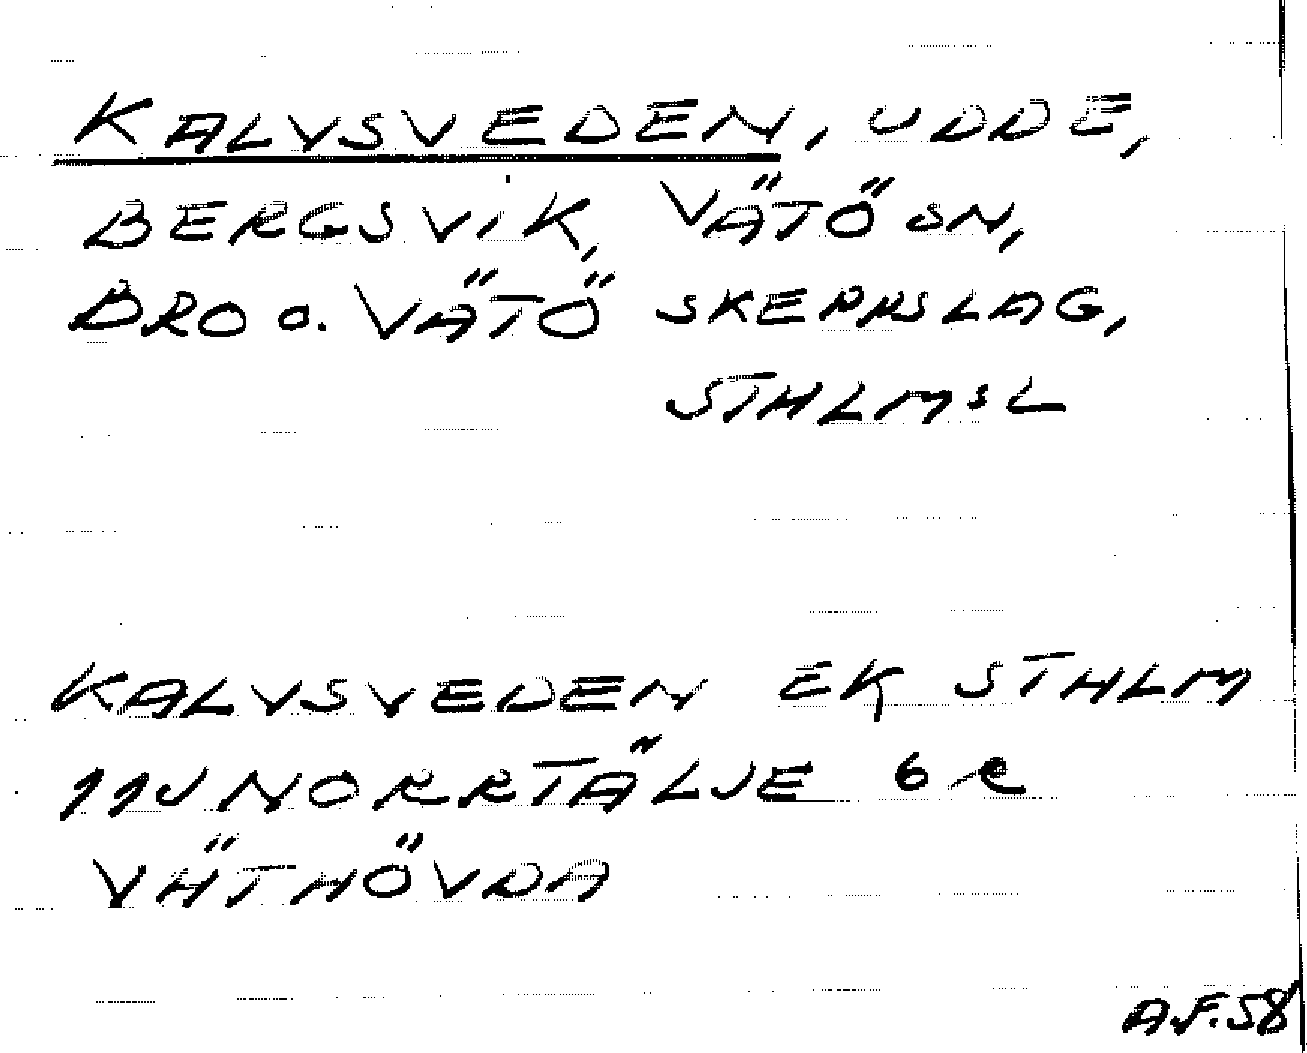 KALVSVEDEN, UDDE,
BERGSVIK, VÄTÖ SN,
BRO O. VÄTÖ SKEPPSLAG,
STHLMSL
KALVSVEDEN EK STHLM
11J NORRTÄLJE 6 e
VÄTHÖVDA
A.F.58